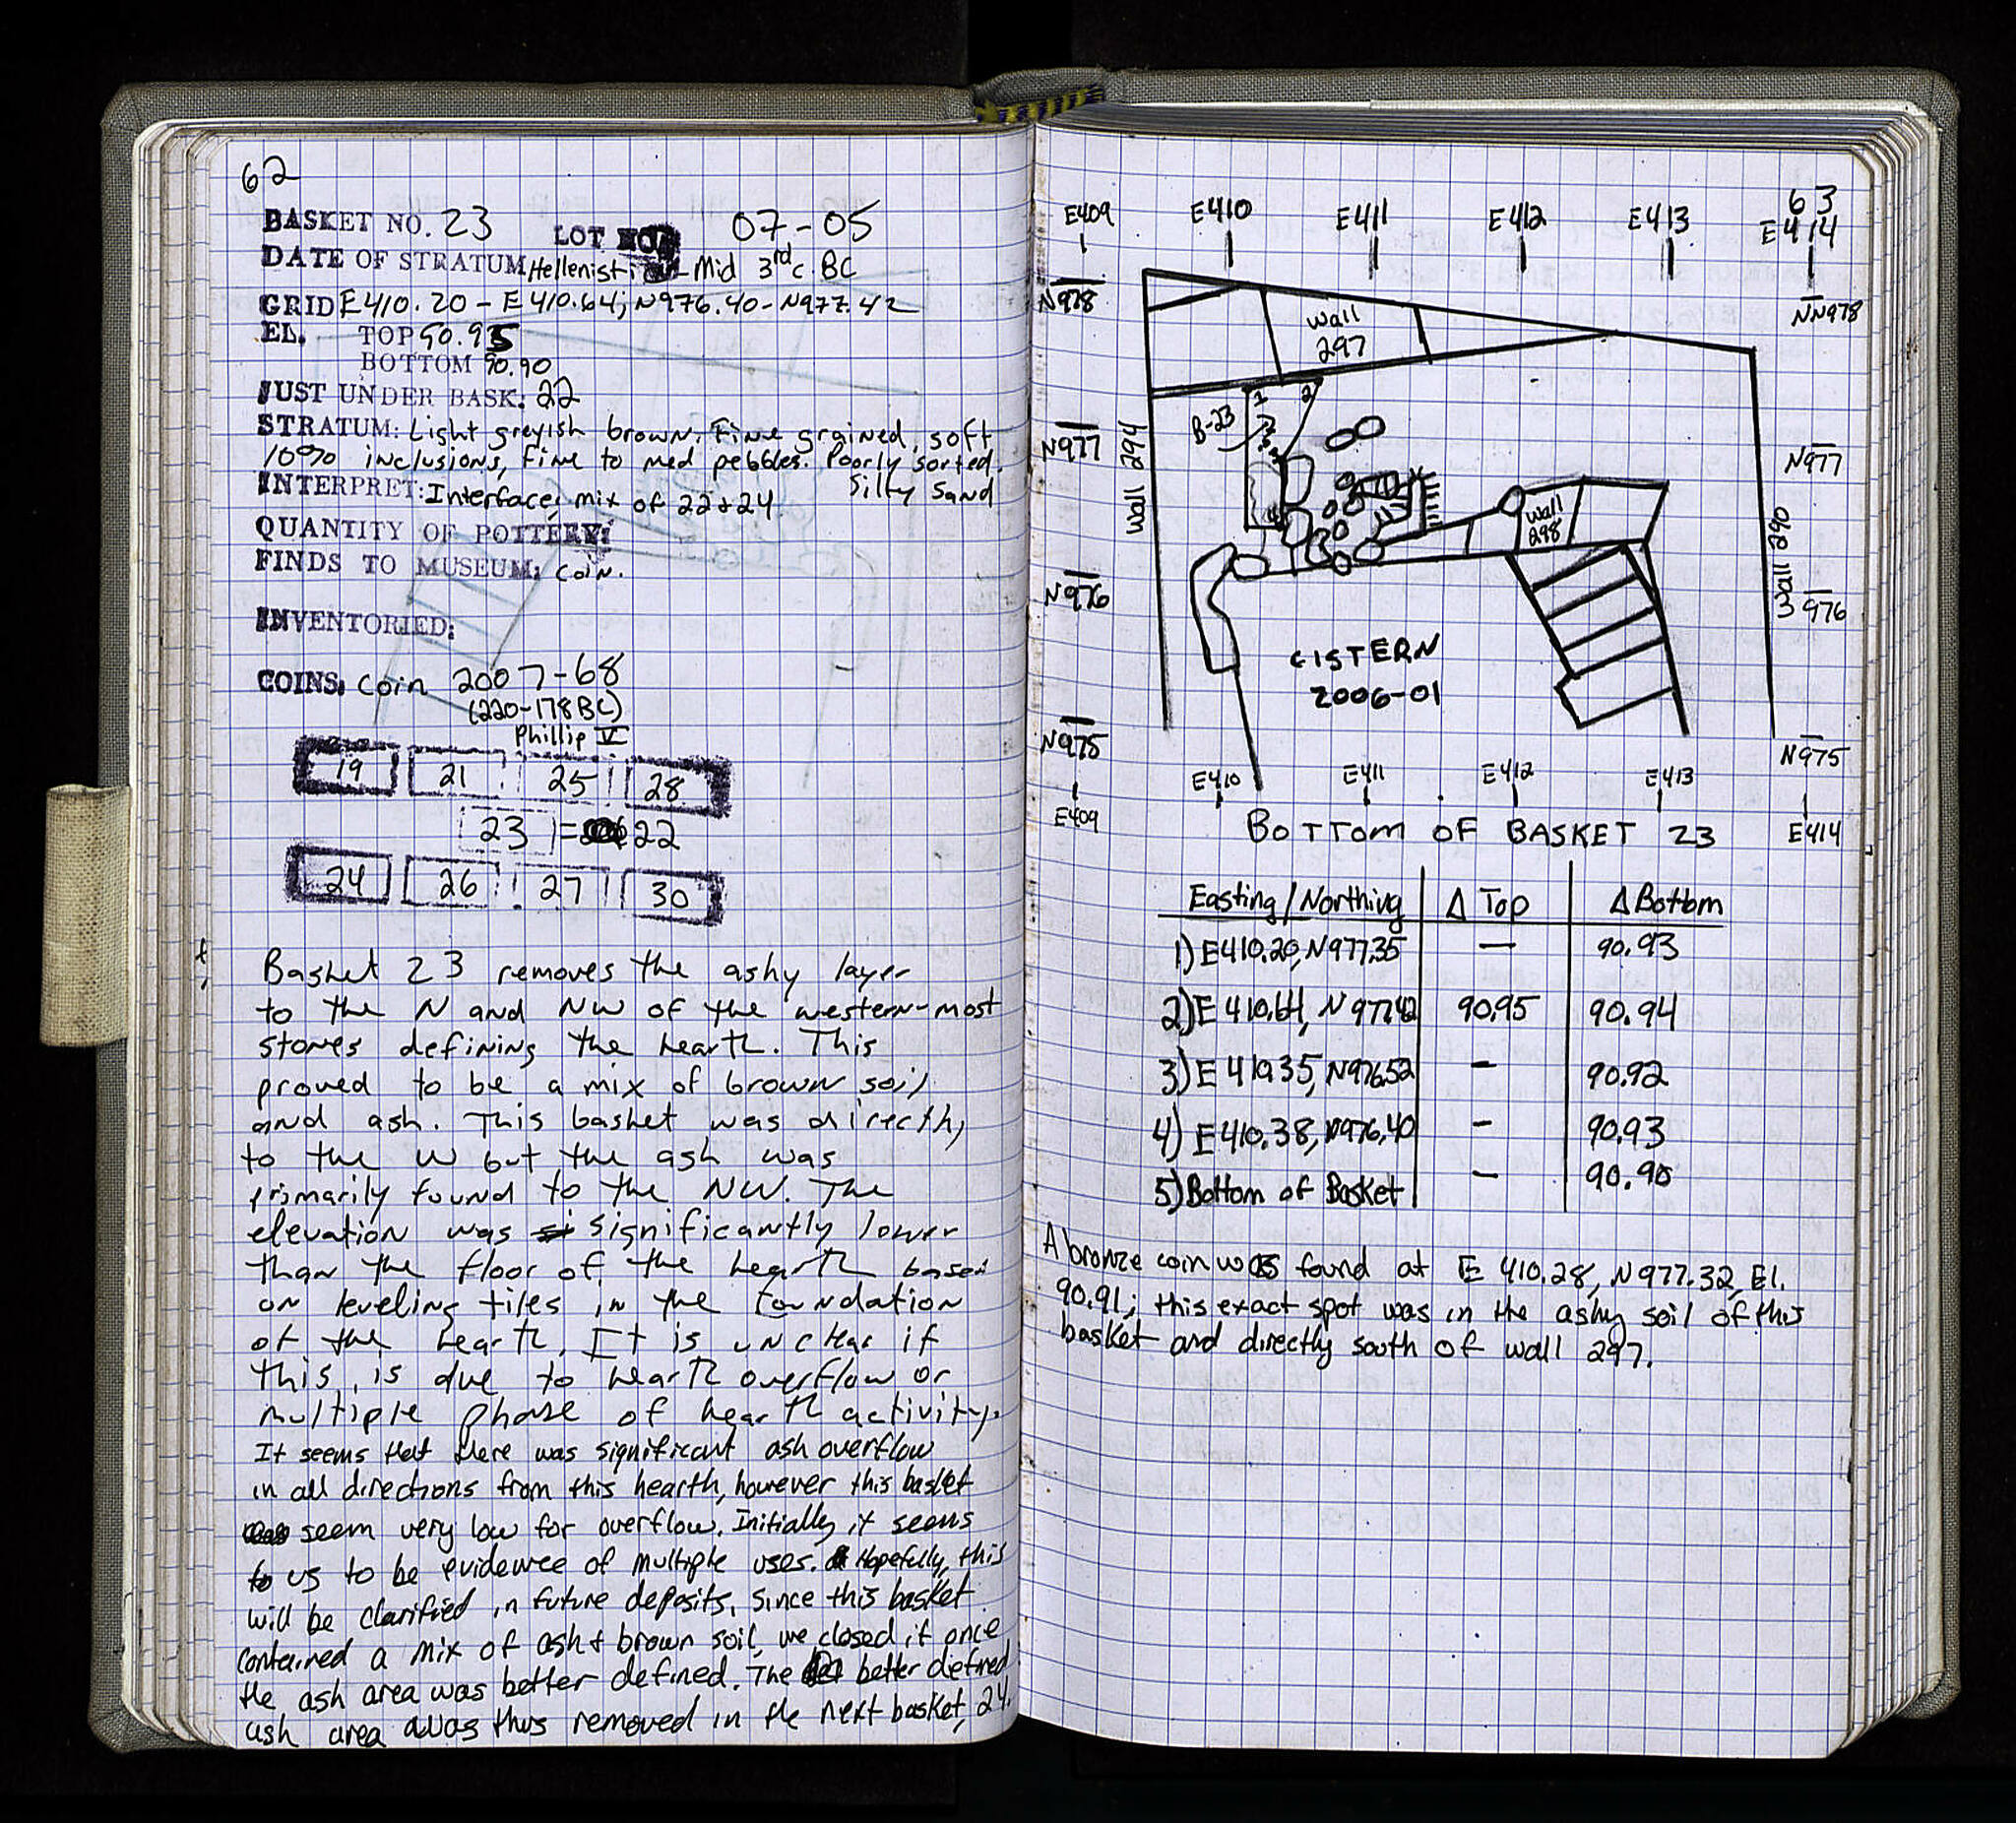 62
BASKET NO. 23 LOT NO. 07-05
DATE OF STRATUM Hellenisti - Mid 3rd c. BC
GRID E410.20 - E410.64; N976.40 - N977.42
EL. TOP 90.95
BOTTOM 90.90
JUST UNDER BASK: 22
STRATUM: Light greyish brown, fine grained, soft
10% inclusions, fine to med pebbles. Poorly sorted.
Silty Sand
INTERPRET: Interface, mix of 22+24
QUANTITY OF POTTERY:
FINDS TO MUSEUM: coin.
INVENTORIED:
COINS: coin 2007-68
(220-178 BC)
Phillip V
19 21 25 28
23 = 22
24 26 27 30
Basket 23 removes the ashy layer
to the N and NW of the western-most
stones defining the hearth. This
proved to be a mix of brown soil
and ash. This basket was directly
to the W but the ash was
primarily found to the NW. The
elevation was significantly lower
than the floor of the hearth based
on leveling tiles in the foundation
of the hearth. It is unclear if
this is due to hearth overflow or
multiple phase of hearth activity.
It seems that there was significant ash overflow
in all directions from this hearth, however this basket
seem very low for overflow. Initially, it seems
to us to be evidence of multiple uses. Hopefully, this
will be clarified in future deposits. Since this basket
contained a mix of ash & brown soil, we closed it once
the ash area was better defined. The better defined
ash area was thus removed in the next basket, 24.
63
E409 E410 E411 E412 E413 E414
N978 NN978
wall 297
1 2
B-23
N977 wall 294 N977
wall 298
wall 290
N976 976
CISTERN
2006-01
N975 N975
E410 E411 E412 E413
E409 E414
BOTTOM OF BASKET 23
Easting/Northing Δ Top Δ Bottom
1) E410.20, N977.35 — 90.93
2) E 410.64, N977.42 90.95 90.94
3) E 410.35, N976.52 - 90.92
4) E 410.38, N976.40 - 90.93
5) Bottom of Basket - 90.90
A bronze coin was found at E 410.28, N977.32, El.
90.91; this exact spot was in the ashy soil of this
basket and directly south of wall 297.